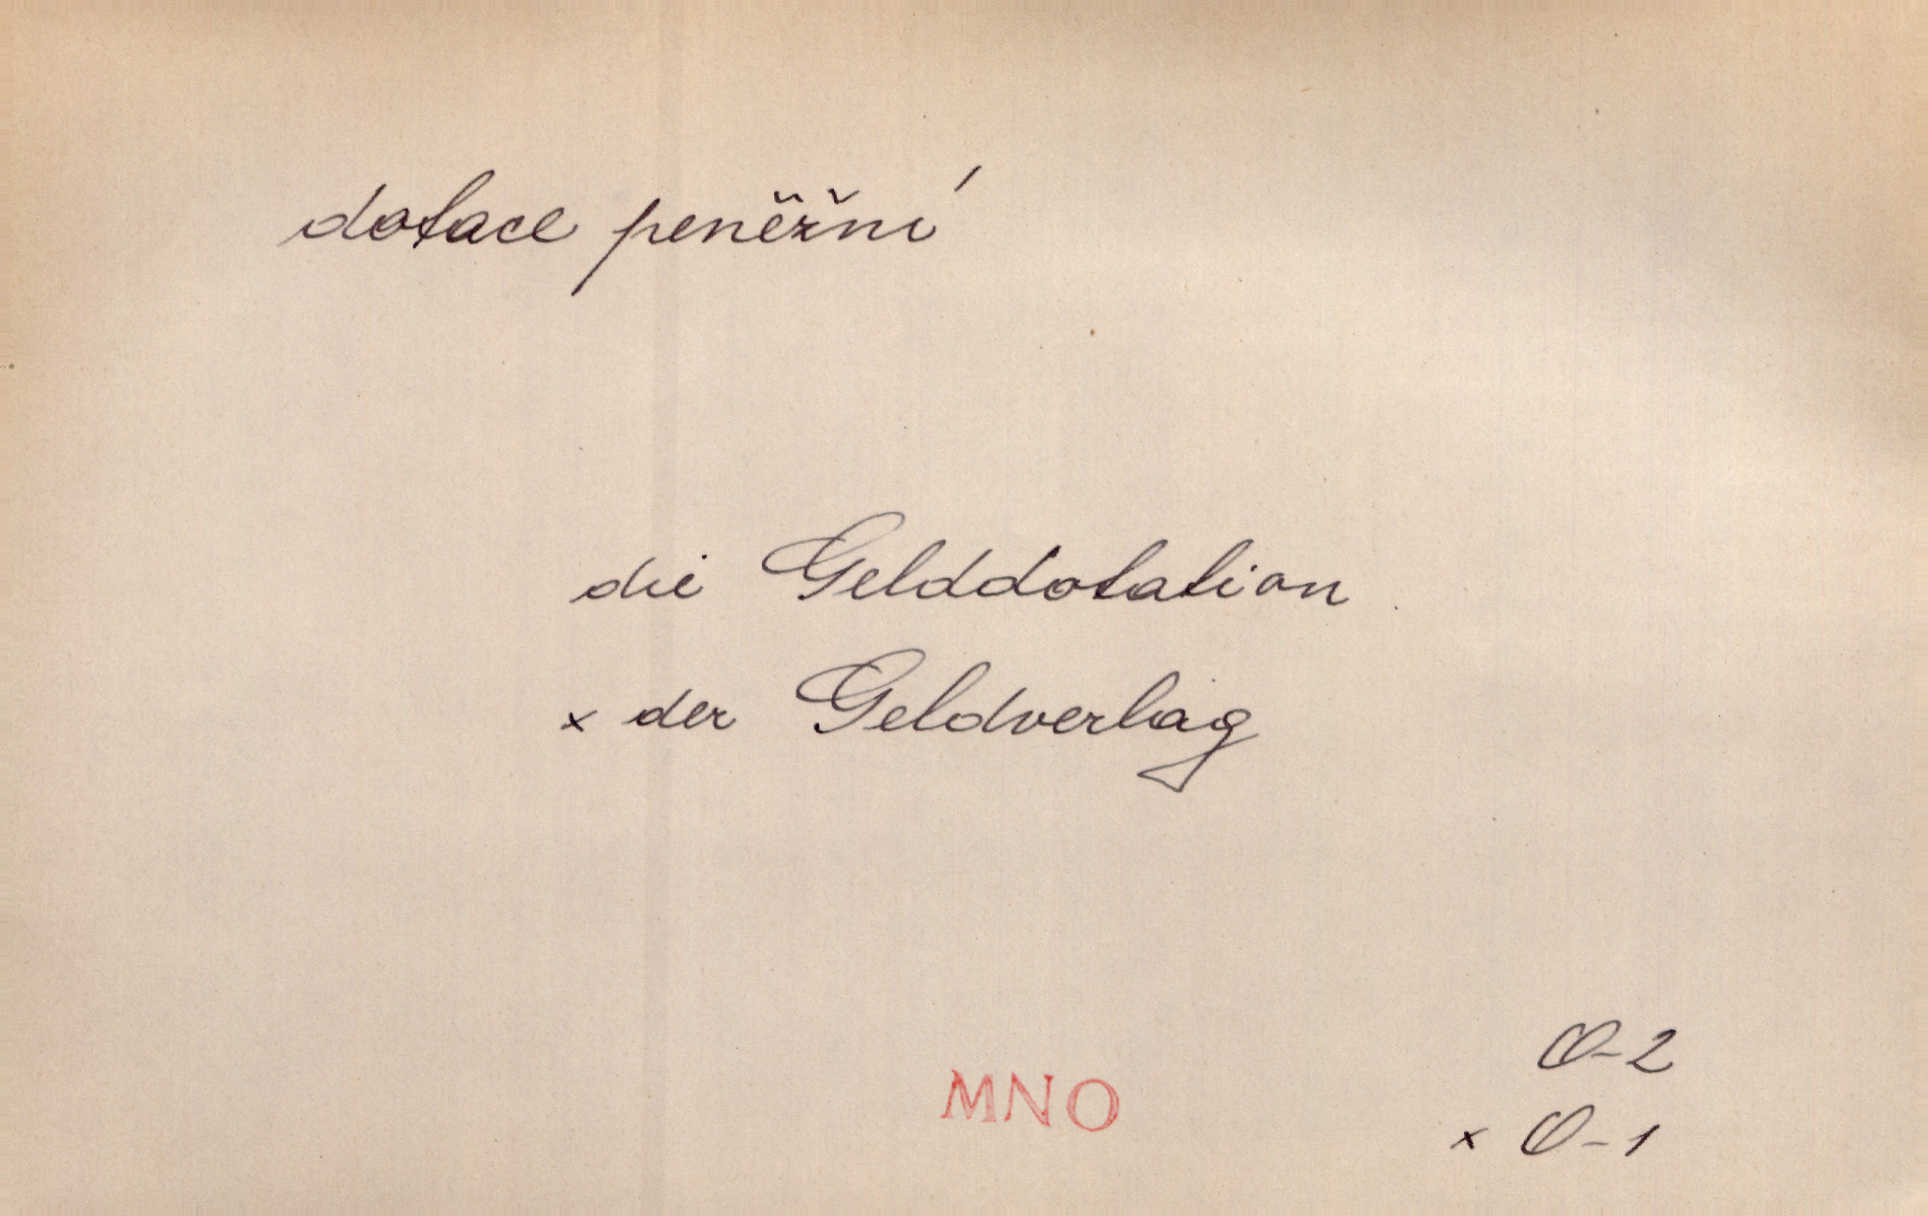 dotace peněžní
die Gelddotation
x der Geldverlag
O-2
MNO
x O-1